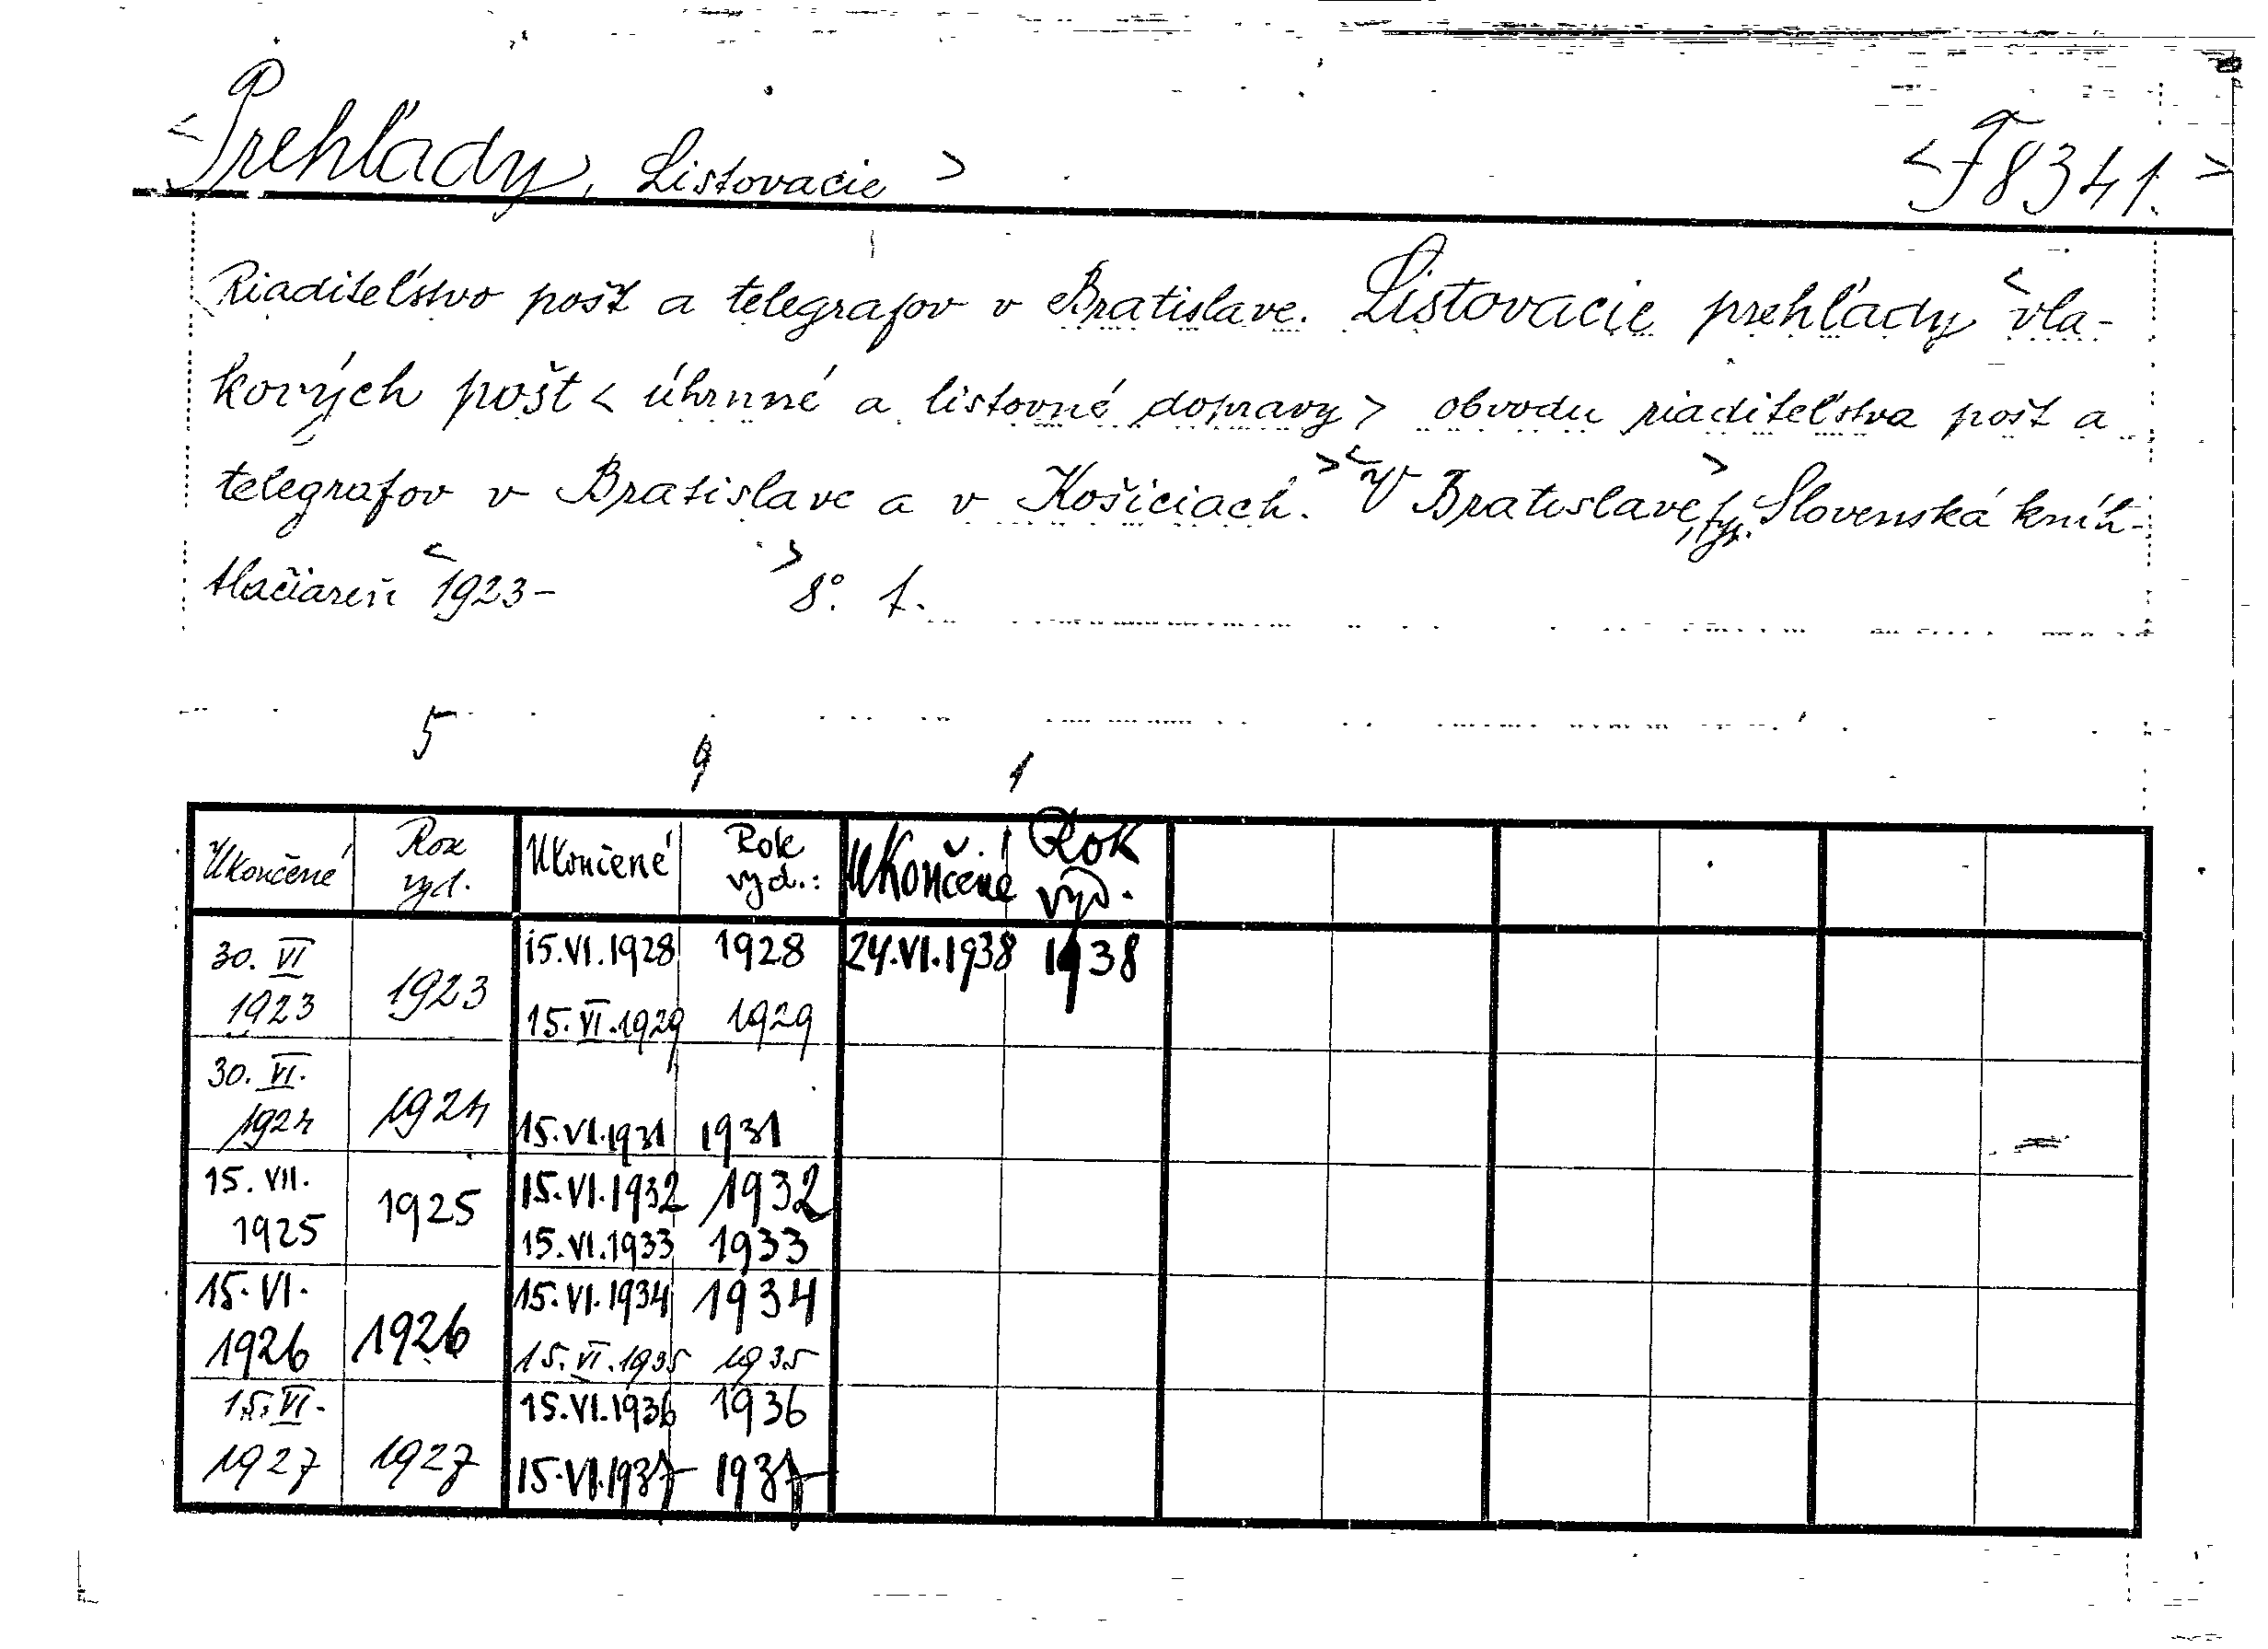 <Prehľady, Listovacie> <F 8341.>
Riaditeľstvo pošt a telegrafov v Bratislave. Listovacie prehľady <vla-
kových pošt < úhrnné a listovné dopravy > obvodu riaditeľstva pošt a
telegrafov v Bratislave a v Košiciach. > <V Bratislave, > typ. Slovenská kníh-
tlačiareň <1923- > 8°. f.
5 9 1
Ukončené Rok vyd. Ukončené Rok vyd.: Ukončené Rok vyd.
30. VI 1923 1923 15.VI.1928 1928 24.VI.1938 1938
15.VI.1929 1929
30. VI. 1924 1924 15.VI.1931 1931
15. VII. 1925 1925 15.VI.1932 1932
15.VI.1933 1933
15. VI. 1926 1926 15.VI.1934 1934
15.VI.1935 1935
15. VI. 1927 1927 15.VI.1936 1936
15.VI.1937 1937